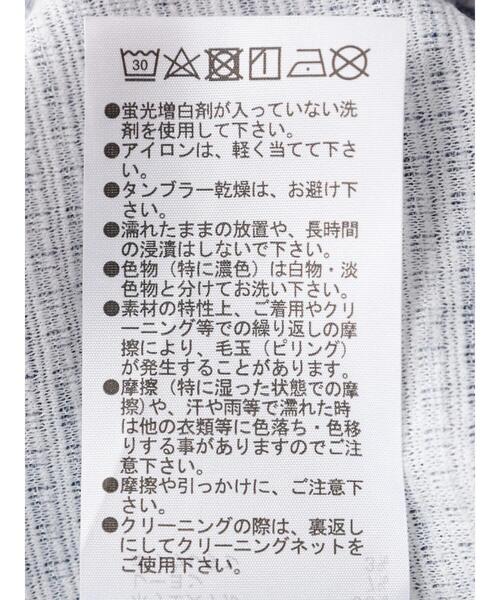 30
●蛍光増白剤が入っていない洗
剤を使用して下さい。
●アイロンは、軽く当てて下さ
い。
●タンブラー乾燥は、お避け下
さい。
●濡れたままの放置や、長時間
の浸漬はしないで下さい。
●色物（特に濃色）は白物・淡
色物と分けてお洗い下さい。
●素材の特性上、ご着用やクリ
ーニング等での繰り返しの摩
擦により、毛玉（ピリング）
が発生することがあります。
●摩擦（特に湿った状態での摩
擦)や、汗や雨等で濡れた時
は他の衣類等に色落ち・色移
りする事がありますのでご注
意下さい。
●摩擦や引っかけに、ご注意下
さい。
●クリーニングの際は、裏返し
にしてクリーニングネットを
ご使用下さい。